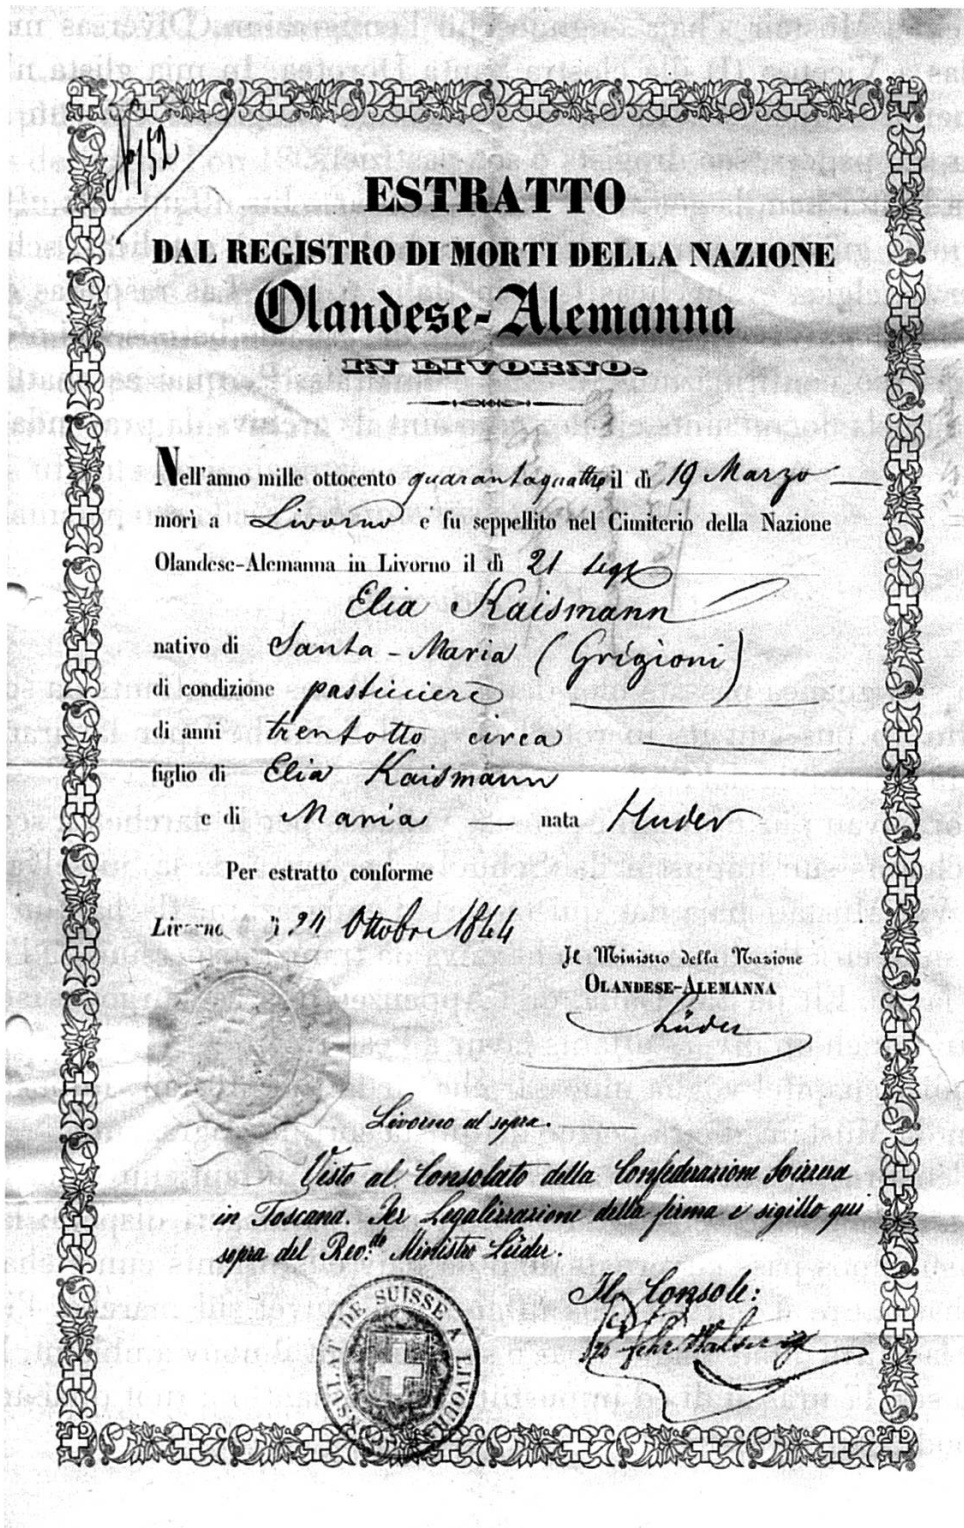 No 152
ESTRATTO
DAL REGISTRO DI MORTI DELLA NAZIONE
Olandese-Alemanna
IN LIVORNO.
Nell'anno mille ottocento quarantaquattro il dì 19 Marzo
morì a Livorno e fu seppellito nel Cimiterio della Nazione
Olandese-Alemanna in Livorno il dì 21
Elia Kaismann
nativo di Santa-Maria (Grigioni)
di condizione pasticciere
di anni trentotto circa
figlio di Elia Kaismann
e di Maria — nata Huder
Per estratto conforme
Livorno 24 Ottobre 1844
Il Ministro della Nazione
OLANDESE-ALEMANNA
Lüder
Livorno al sopra.
Visto al Consolato della Confederazione Svizzera
in Toscana. Per Legalizzazione della firma e sigillo qui
sopra del Rev.do Ministro Lüder.
Il Console:
CONSULAT DE SUISSE A LIVOURNE